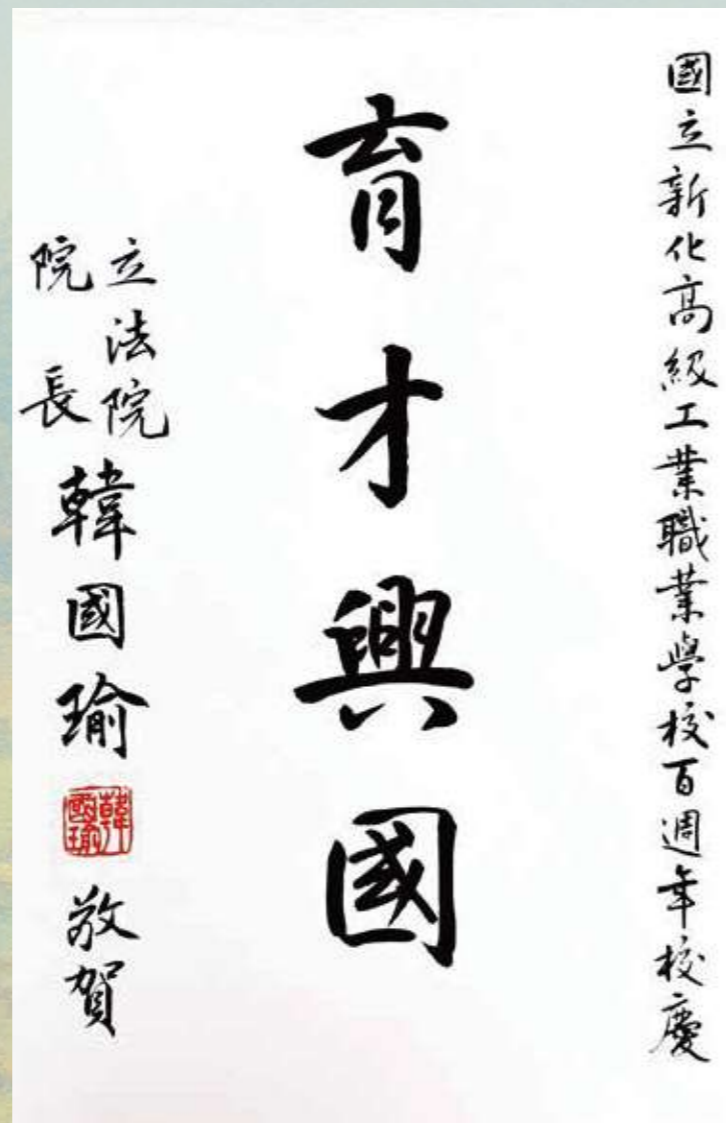 國立新化高級工業職業學校百週年校慶
育才興國
立法院
院長
韓國瑜
韓國瑜
敬賀